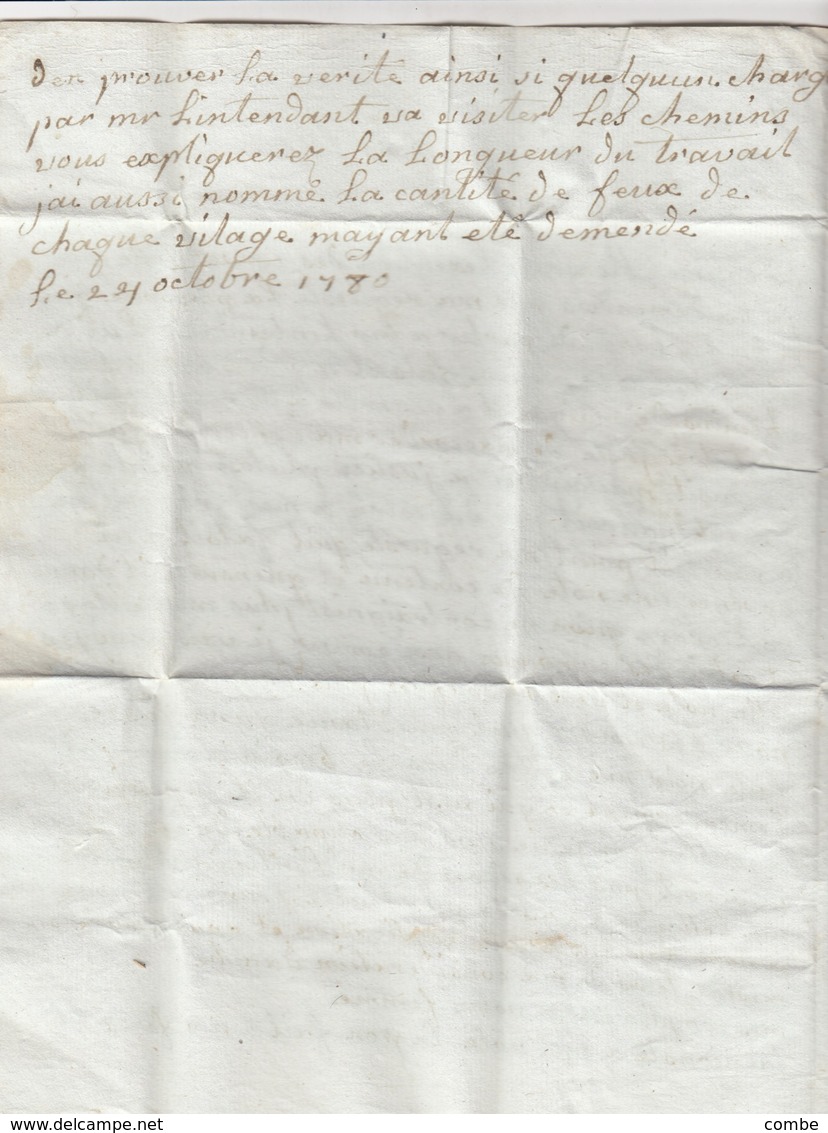 den prouver la verité ainsi si quelquun charg
par mr lintendant va visiter les chemins
vous expliquerez la longueur du travail
jai aussi nommé la cantité de feux de
chaque vilage mayant eté demendé
le 24 octobre 1780
www.delcampe.net
combe